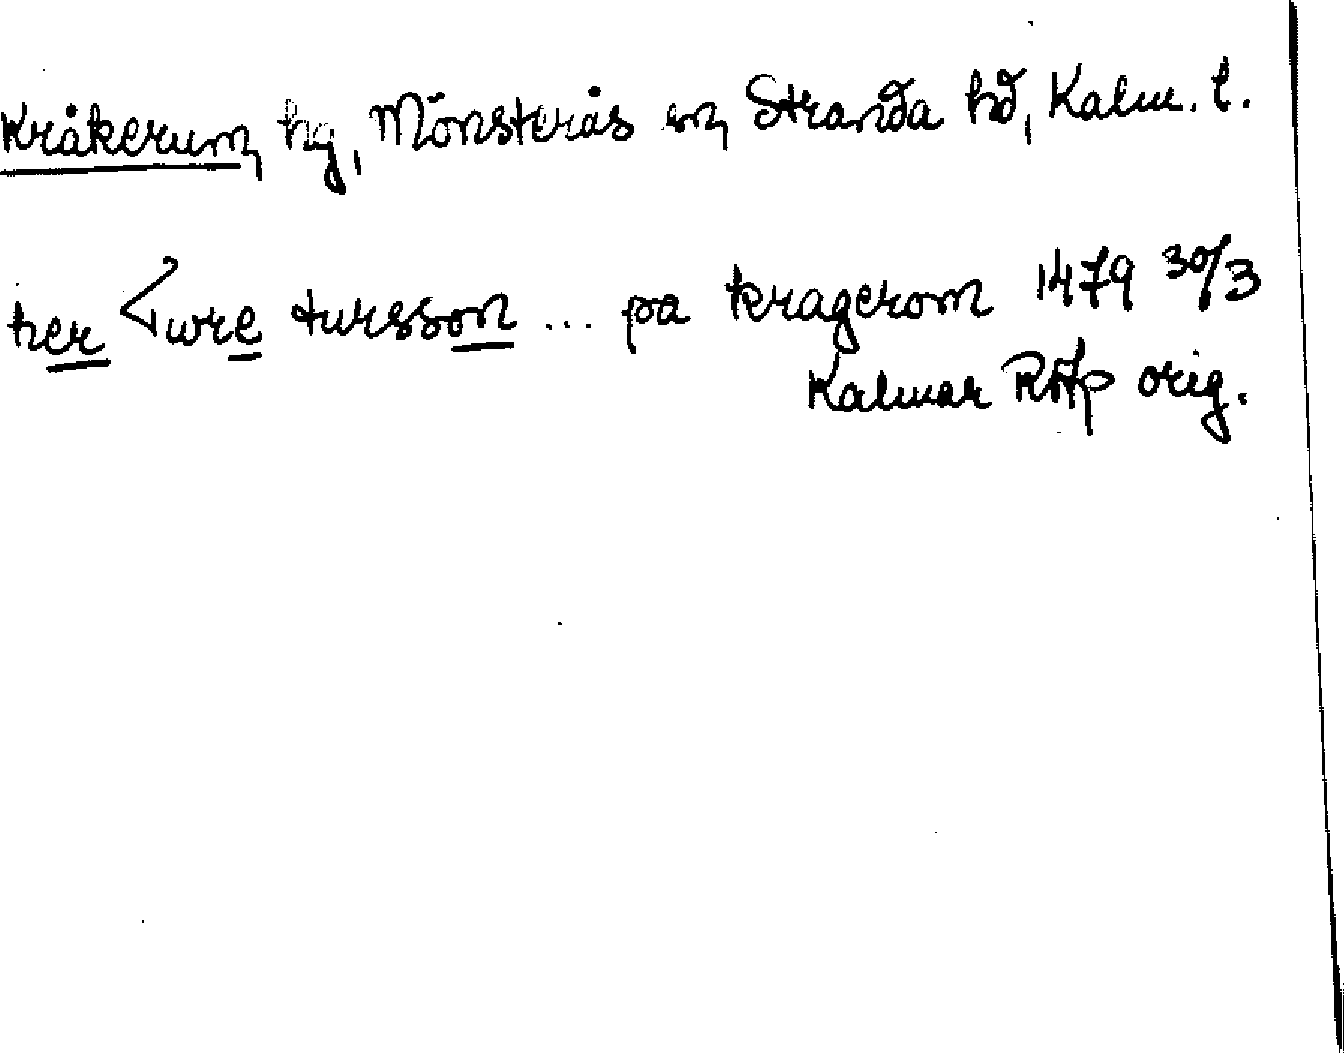 Kråkerum, hg, Mönsterås sn, Stranda hd, Kalm. l.
her Ture tursson ... pa kragerom 1479 30/3
Kalmar RAp orig.